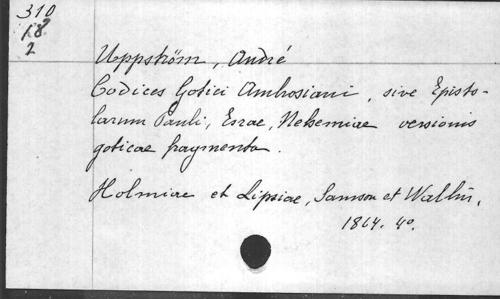 310
18?
2
Uppström, André
Codices Gotici Ambrosiani, sive Episto-
larum Pauli, Esrae, Nehemiae versionis
goticae fragmenta.
Holmiae et Lipsiae, Samson et Wallin,
1864. 4o.